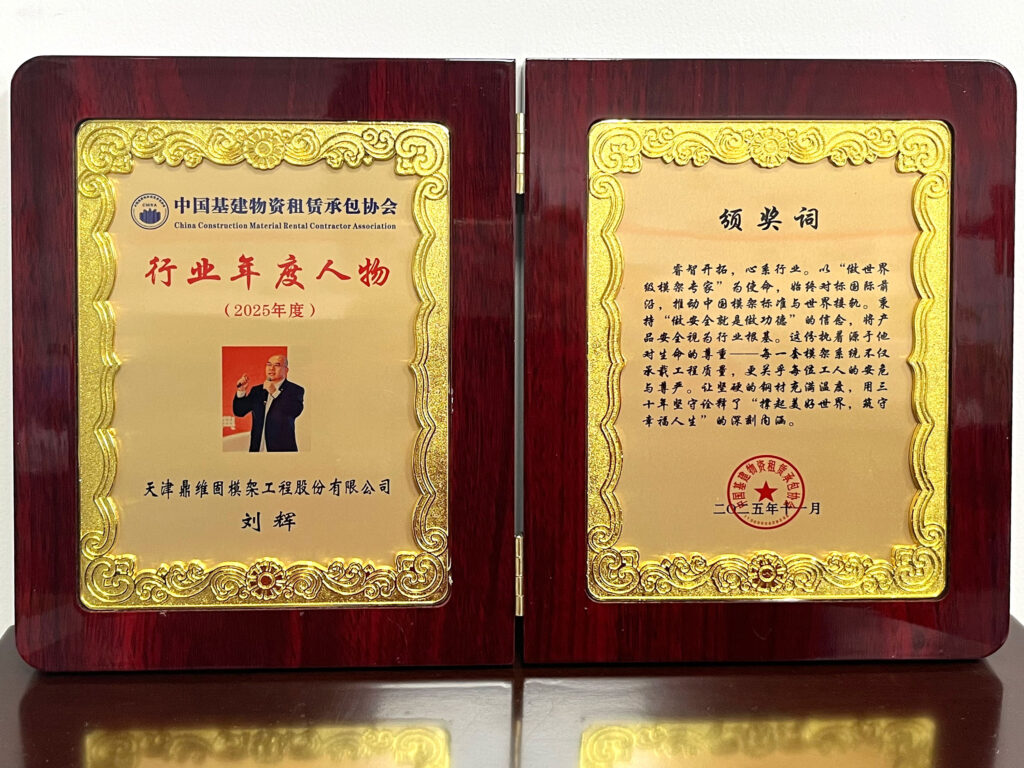 中国基建物资租赁承包协会
China Construction Material Rental Contractor Association
行业年度人物
（2025年度）
天津鼎维固模架工程股份有限公司
刘辉
颁奖词
睿智开拓，心系行业。以“做世界
级模架专家”为使命，始终对标国际前
沿，推动中国模架标准与世界接轨。秉
持“做安全就是做功德”的信念，将产
品安全视为行业根基。这份执着源于他
对生命的尊重——每一套模架系统不仅
承载工程质量，更关乎每位工人的安危
与尊严。让坚硬的钢材充满温度，用三
十年坚守诠释了“撑起美好世界，筑守
幸福人生”的深刻内涵。
中国基建物资租赁承包协会
二〇二五年十一月